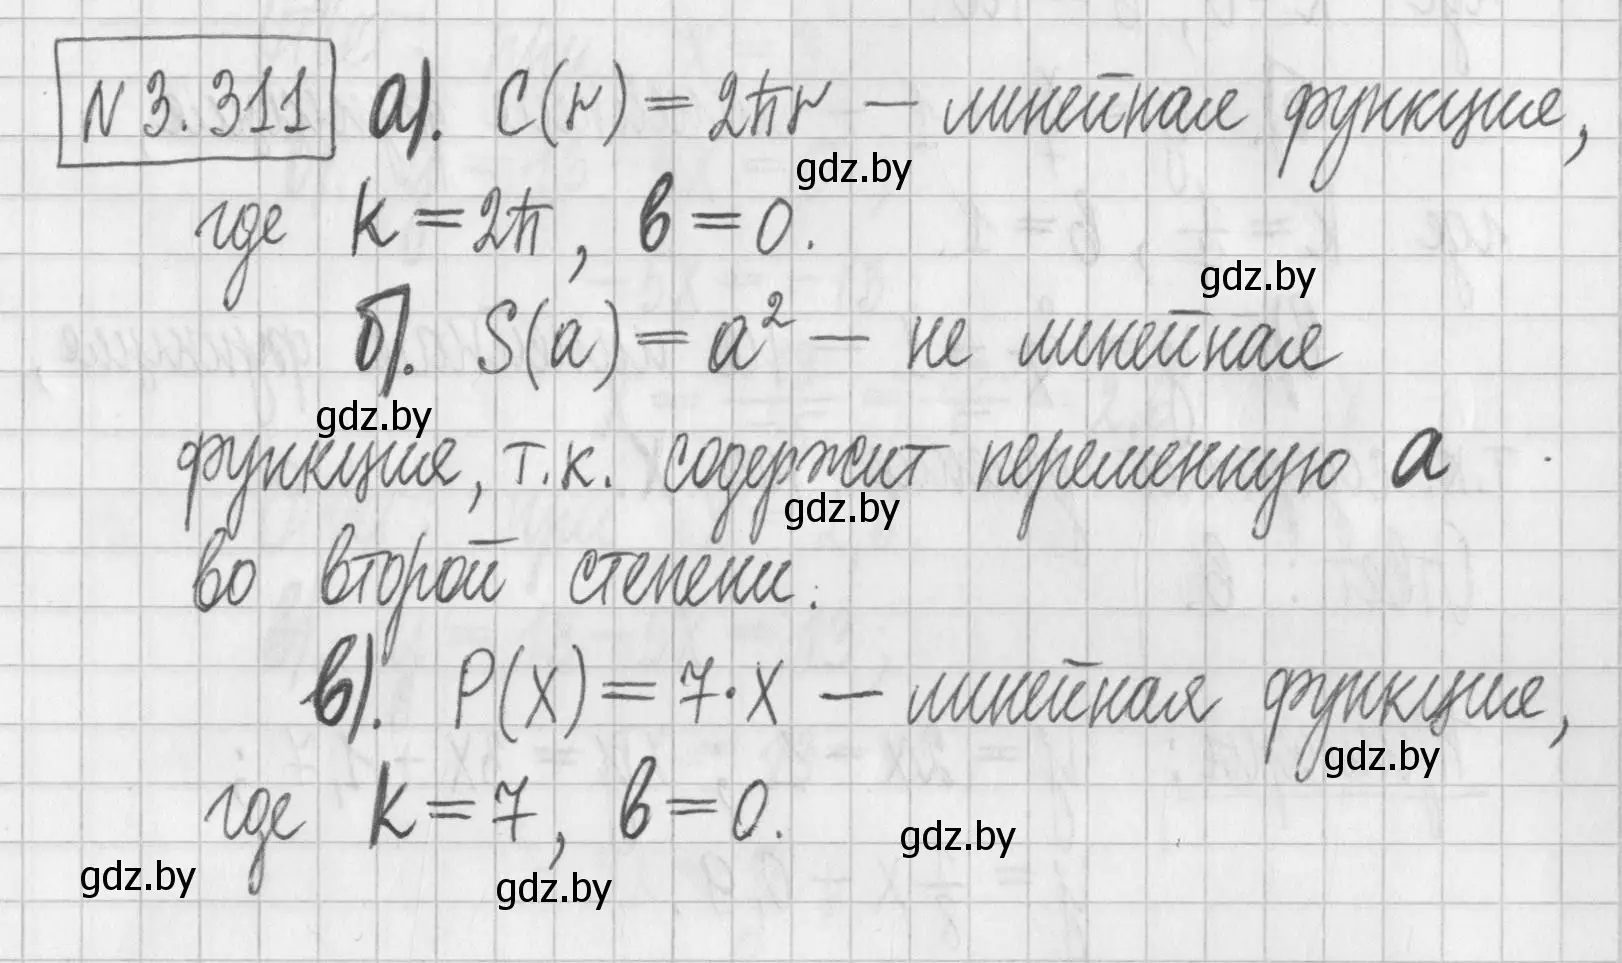 N 3.311 а). C(r) = 2πr – линейная функция,
gdz.by
где k = 2π, в = 0.
gdz.by
б). S(a) = a² – не линейная
gdz.by
функция, т.к. содержит переменную a
gdz.by
во второй степени.
в). P(x) = 7·x – линейная функция,
gdz.by
где k = 7, в = 0.
gdz.by
gdz.by
gdz.by